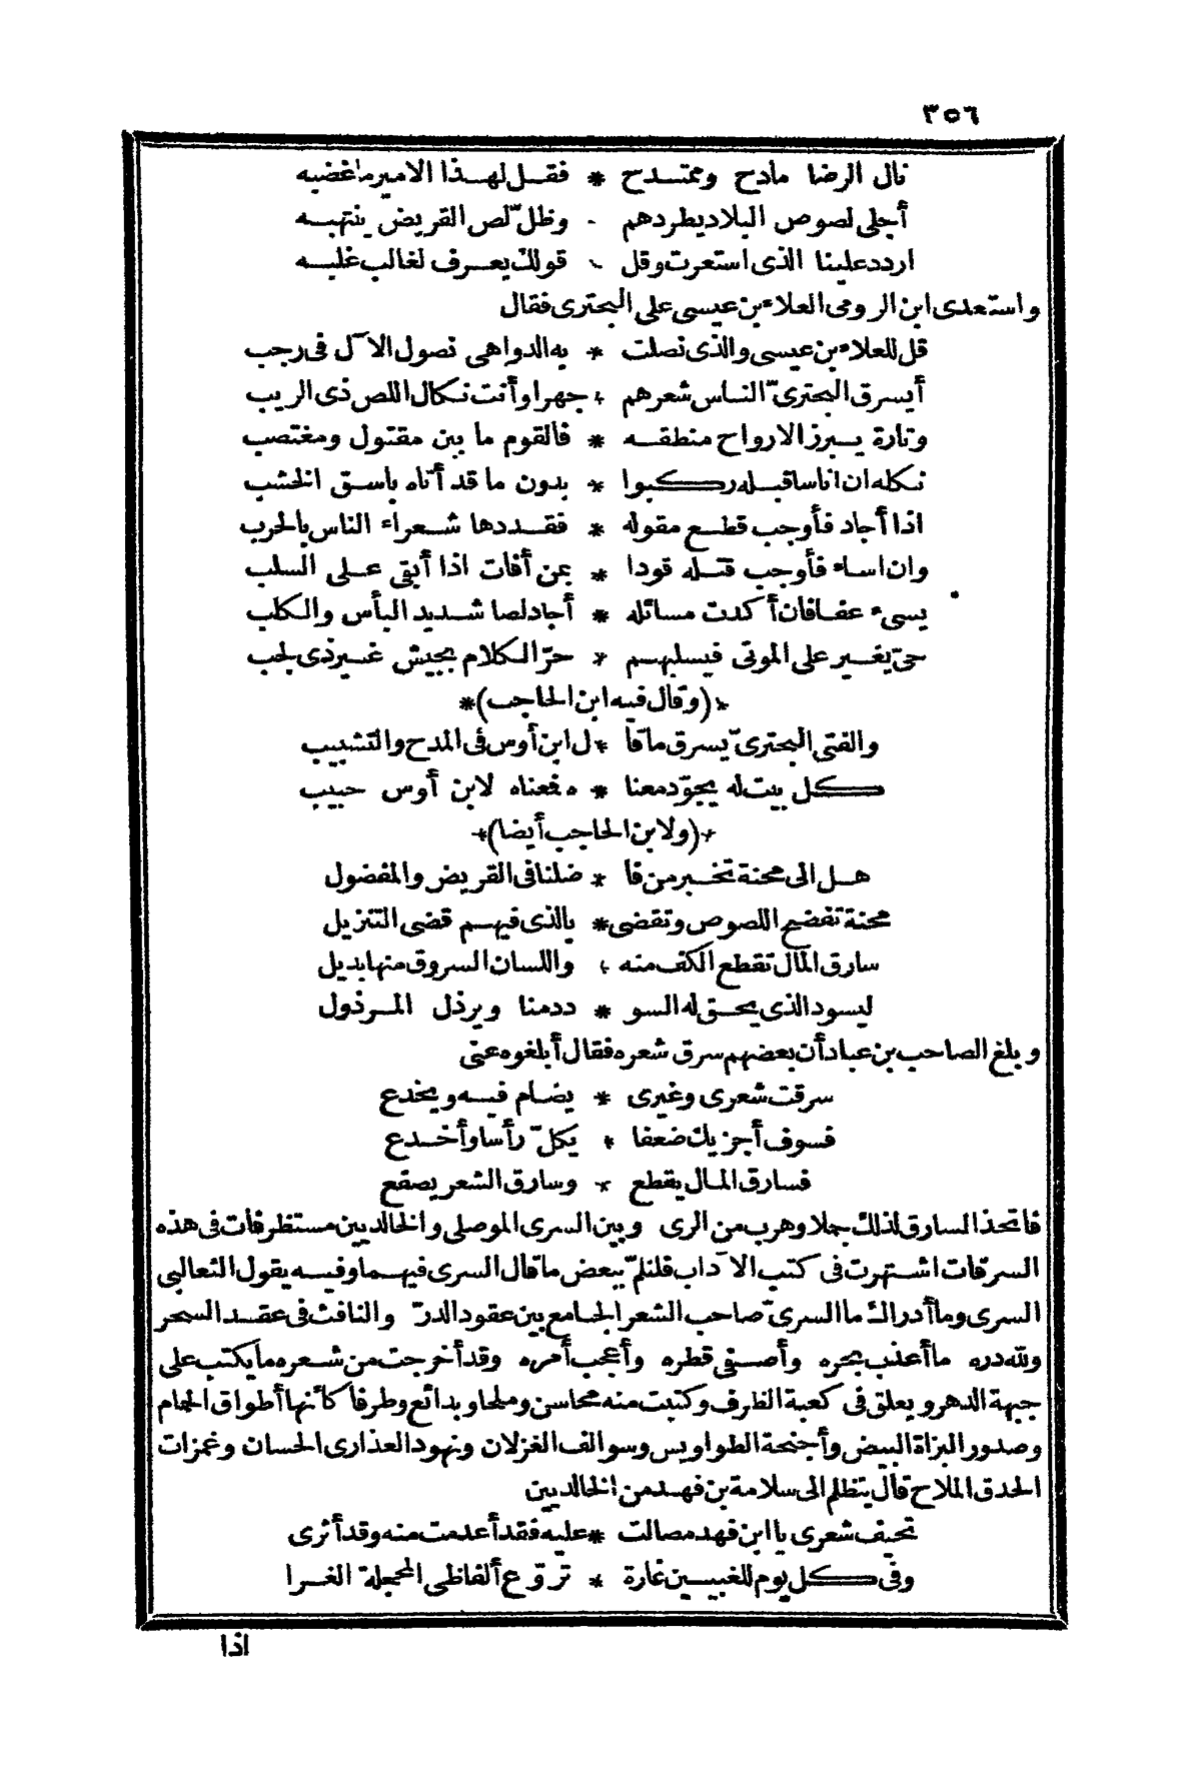 ٣٥٦
نال الرضا مادح وممتدح * فقل لهذا الامير ما غضبه
أجلى لصوص البلاد يطردهم - وظلّ لص القريض ينتهبه
اردد علينا الذى استعرت وقل - قولك يعرف لغالب غلبه
واستعدى ابن الرومى العلاء بن عيسى على البحترى فقال
قل للعلاء بن عيسى والذى نصلت * به الدواهى نصول الآل فى رجب
أيسرق البحترىّ الناس شعرهم * جهرا وأنت نكال اللص ذى الريب
وتارة يبرز الارواح منطقه * فالقوم ما بين مقتول ومغتصب
نكله ان اناسا قبله ركبوا * بدون ما قد أتاه باسق الخشب
اذا أجاد فأوجب قطع مقوله * فقد دها شعراء الناس بالحرب
وان اساء فأوجب قتله قودا * بمن أفات اذا أبقى على السلب
يسىء عفا فان أكدت مسائله * أجاد لصا شديد البأس والكلب
حىّ يغير على الموتى فيسلبهم * حرّ الكلام بجيش غير ذى لجب
*(وقال فيه ابن الحاجب)*
والفتى البحترىّ يسرق ما قا * ل ابن أوس فى المدح والتشبيب
كل بيت له يجوّد معنا * ه فمعناه لابن أوس حبيب
*(ولابن الحاجب أيضا)*
هل الى محنة تخبر من فا * ضلنا فى القريض والمفضول
محنة تفضح اللصوص وتقضى * بالذى فيهم قضى التنزيل
سارق المال تقطع الكف منه * واللسان السروق منها بديل
ليسود الذى يحق له السو * ددمنا ويرذل المرذول
وبلغ الصاحب بن عباد أن بعضهم سرق شعره فقال أبلغوه عنى
سرقت شعرى وغيرى * يضام فيه ويخدع
فسوف أجزيك ضعفا * يكلّ رأسا وأخدع
فسارق المال يقطع * وسارق الشعر يصفع
فاتخذ السارق لذلك جملا وهرب من الرى وبين السرى الموصلى والخالديين مستظرفات فى هذه
السرقات اشتهرت فى كتب الآداب فلنلمّ ببعض ما قال السرى فيهما وفيه يقول الثعالبى
السرى وما أدراك ما السرىّ صاحب الشعر الجامع بين عقود الدرّ والنافث فى عقد السحر
ولله دره ما أعذب بحره وأصفى قطره وأعجب أمره وقد أخرجت من شعره ما يكتب على
جبهة الدهر ويعلق فى كعبة الظرف وكتبت منه محاسن وملحا وبدائع وطرفا كأنها أطواق الحمام
وصدور البزاة البيض وأجنحة الطواويس وسوالف الغزلان ونهود العذارى الحسان وغمزات
الحدق الملاح قال يتظلم الى سلامة بن فهد من الخالديين
تحيف شعرى يا ابن فهد مصالت * عليه فقد أعدمت منه وقد أثرى
وفى كل يوم للغبيين غارة * تروّع ألفاظى المحجلة الغرا
اذا